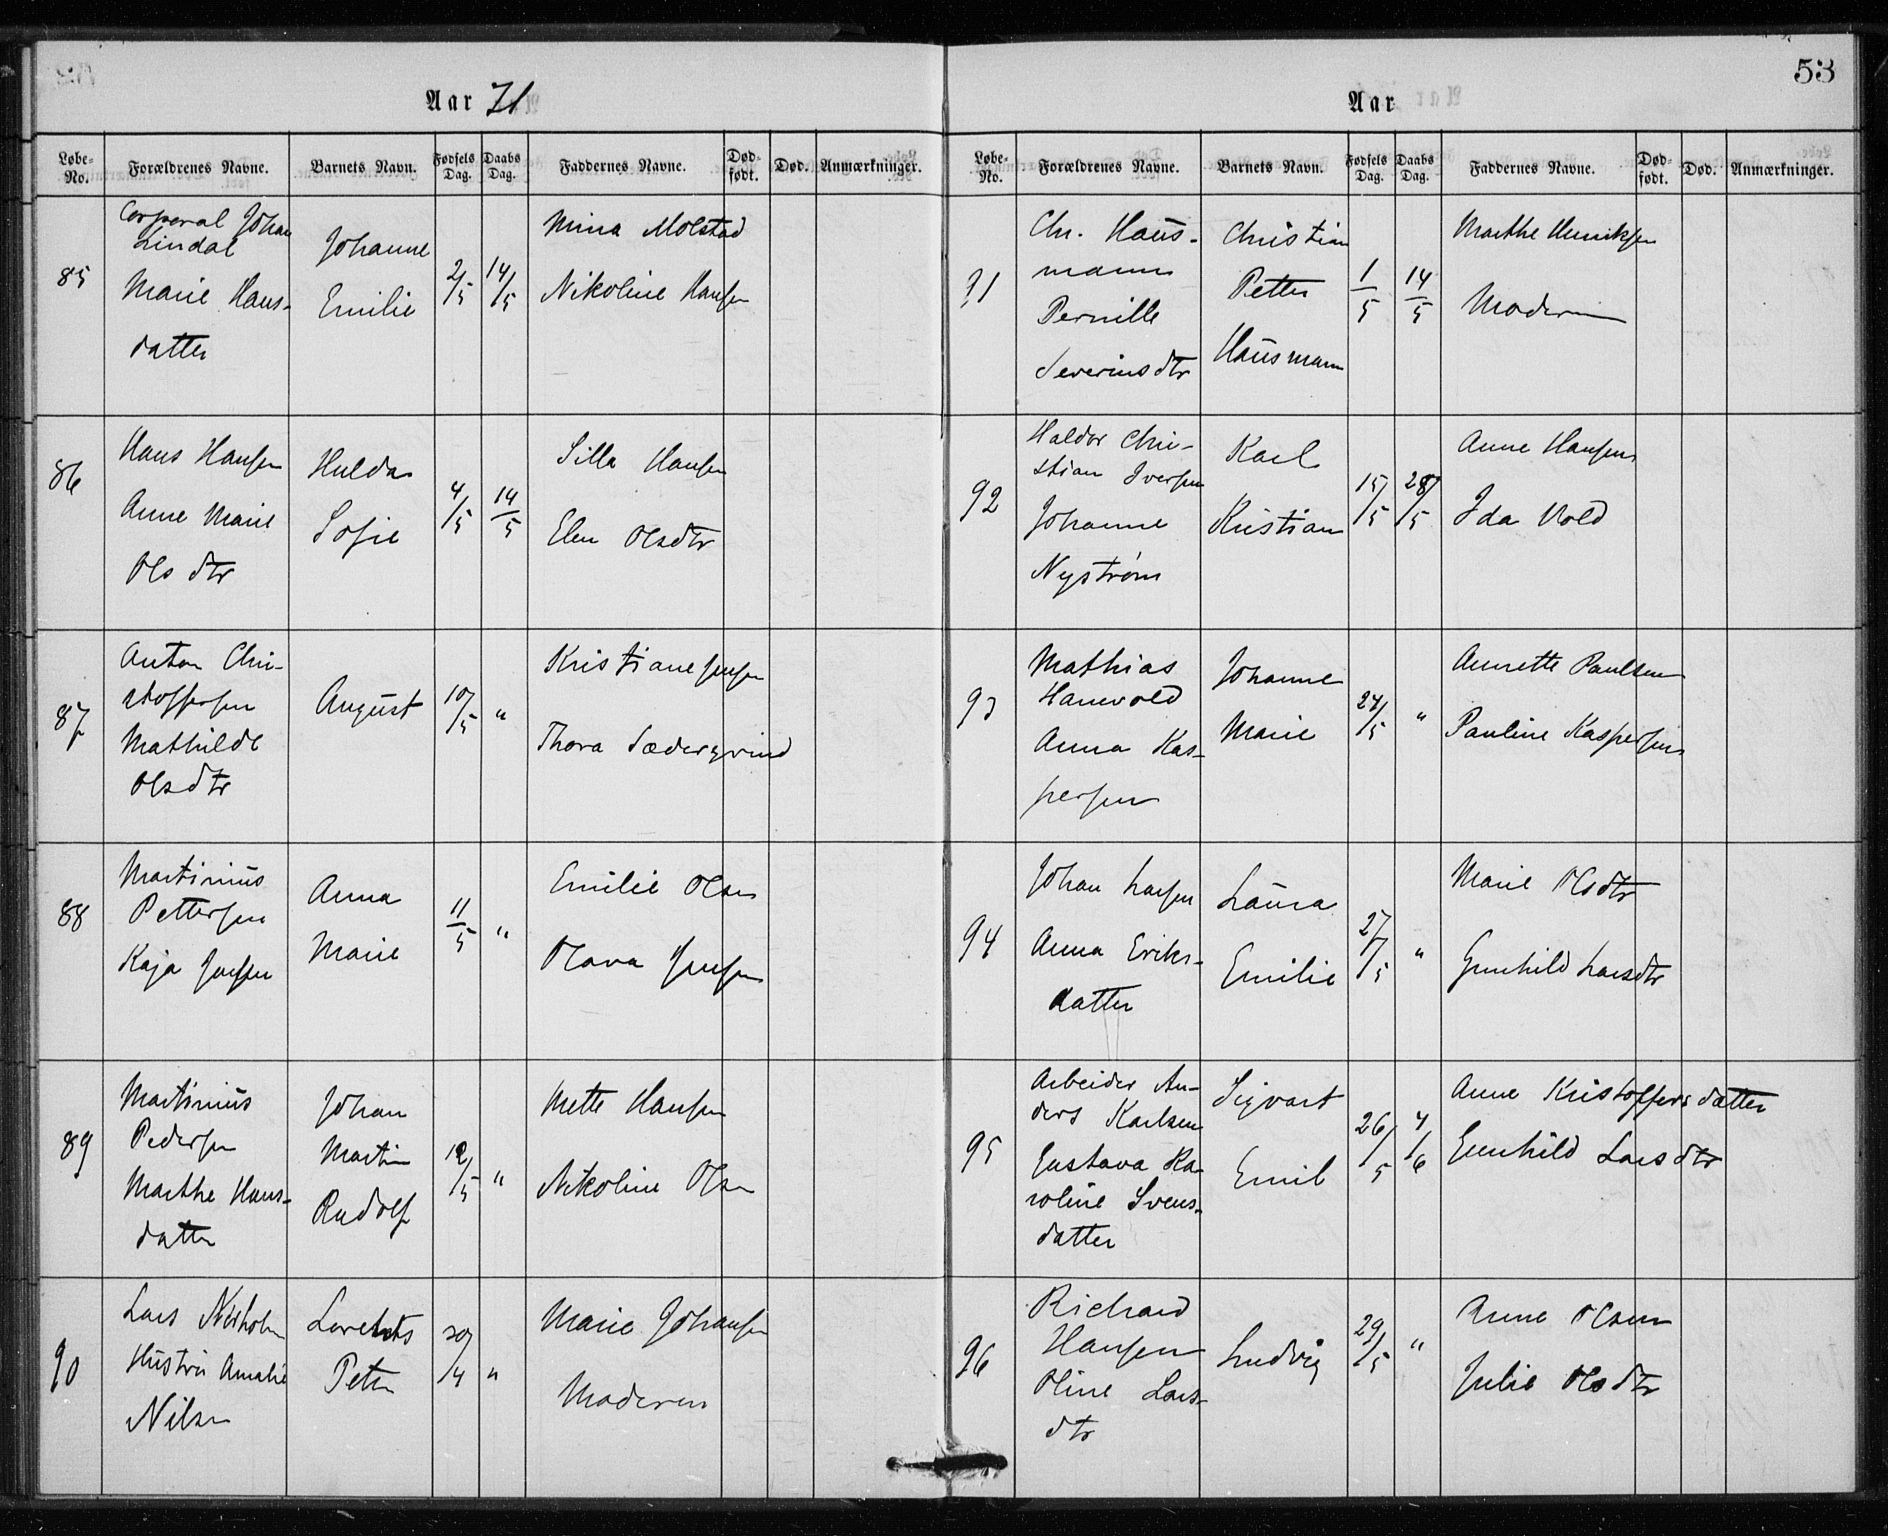 Aar 71
Løbe-No. Forældrenes Navne. Barnets Navn. Fødsels Dag. Daabs Dag. Faddernes Navne. Død-født. Død. Anmærkninger.
85
Corporal Johan
Lindal
Marie Hans-
datter
Johanne
Emilie
2/5
14/5
Mina Molstad
Nikoline Hansen
86
Hans Hansen
Anne Marie
Olsdtr
Hulda
Sofie
4/5
14/5
Silla Hansen
Elen Olsdtr
87
Anton Chri-
stoffersen
Mathilde
Olsdtr
August
10/5
"
Kristiane Jensen
Thora Sæderqvind
88
Martinius
Pettersen
Kaja Jensen
Anna
Marie
11/5
"
Emilie Olsen
Olava Jensen
89
Martinius
Pedersen
Marthe Hans-
datter
Johan
Martin
Rudolf
12/5
"
Mette Hansen
Nikoline Olsen
90
Lars
Hustru Amalie
Nilsen
Peter
30/4
"
Marie Johansen
Moderen
53
Aar
Løbe-No. Forældrenes Navne. Barnets Navn. Fødsels Dag. Daabs Dag. Faddernes Navne. Død-født. Død. Anmærkninger.
91
Chr. Haus-
mann
Pernille
Severinsdtr
Christian
Petter
Hausmann
1/5
14/5
Marthe Henriksen
Moderen
92
Haldor Chri-
stian Iversen
Johanne
Nystrøm
Karl
Kristian
15/5
28/5
Anne Hansen
Ida Vold
93
Mathias
Hanevold
Anna Kas-
persen
Johanne
Marie
24/5
"
Annette Paulsen
Pauline Kaspersen
94
Johan Larsen
Anna Eriks-
datter
Laura
Emilie
27/5
"
Marie Olsdtr
Gunhild Larsdtr
95
Arbeider An-
ders Karlsen
Gustava Ka-
roline Svens-
datter
Sigvart
Emil
26/5
4/6
Anne Kristoffersdatter
Gunhild Larsdtr
96
Richard
Hansen
Oline Lars-
dtr
Ludvig
29/5
"
Anne Olsen
Julie Olsdtr